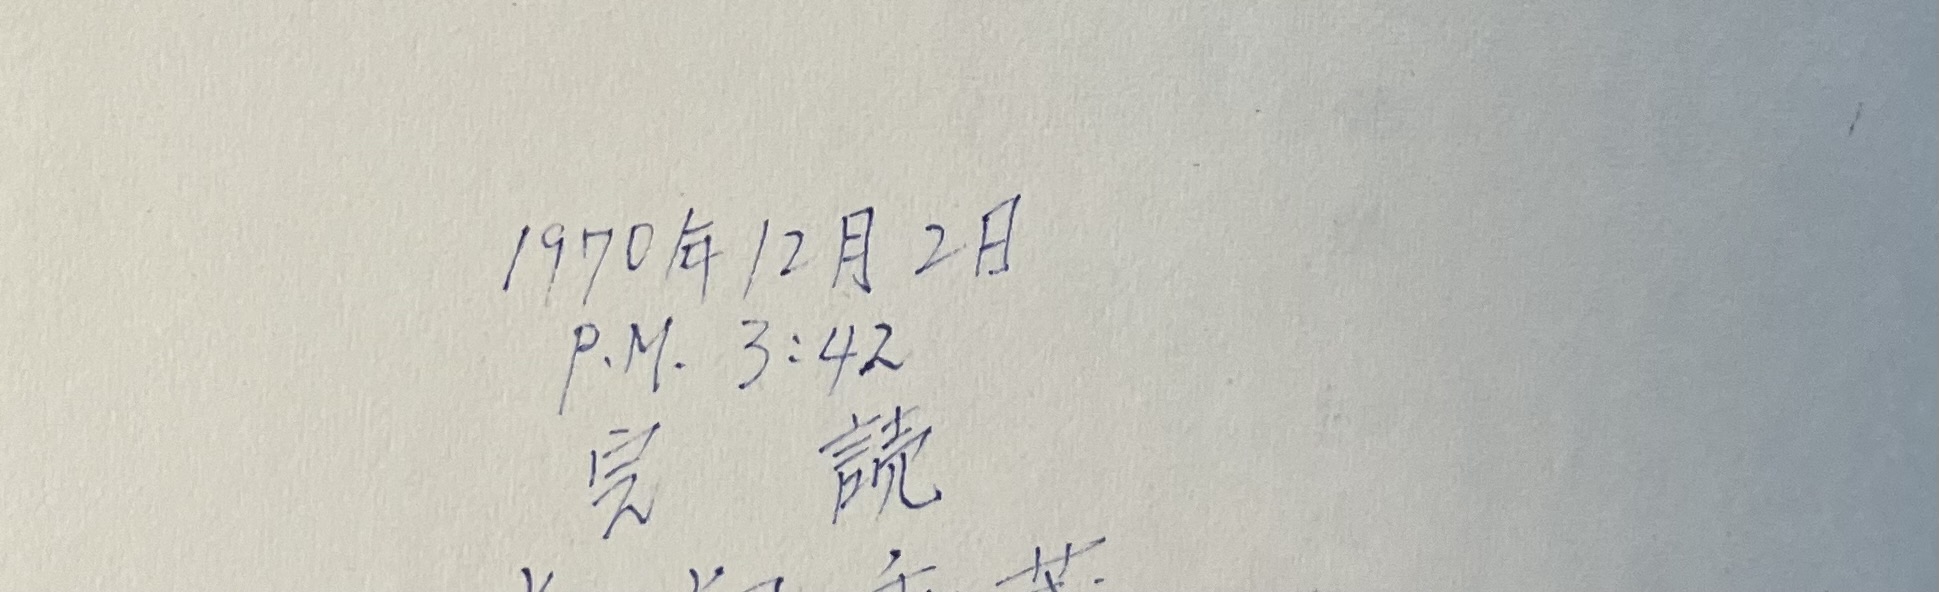 1970年12月2日
P.M. 3:42
完 読